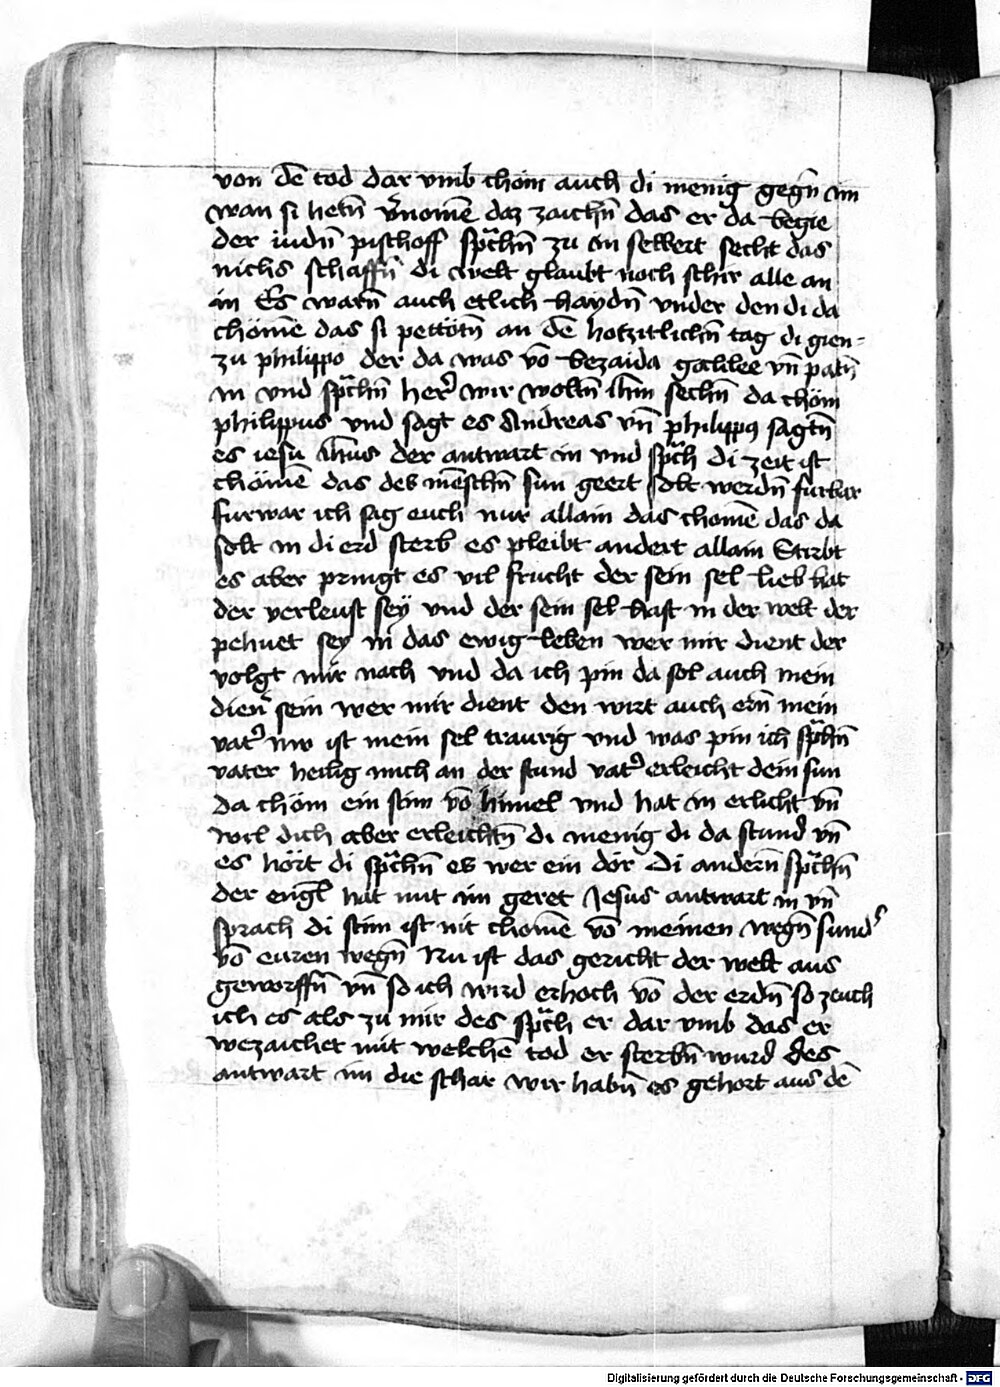 von dē tod dar vmb chöm auch di menig gegn̄ im
wan si hetn̄ v̄nomē daz zaichn̄ das er da begie
der judn̄ pischoff sprachn̄ zu im selbert secht das
nichs schaffn̄ di welt glaubt noch schir alle an
in Es warn̄ auch etlich haydn̄ vnder den di da
chömē das si pettötn̄ an dē hotzitlichn̄ tag di gien-
zu philippo der da was vō bezaida galilee vn̄ patn̄
in vnd sprachn̄ her wir wolln̄ ihm̄ sechn̄ da chöm
philippus vnd sagt es Andreas vn̄ philippus sagtn̄
es iesu ihūs der antwart in vnd sprach di zeit ist
chömē das des mēschn̄ sun geert solt werdn̄ furbar
furwar ich sag euch nur allain das chomē das da
solt in di erd sterb es pleibt andert allain Stirbt
es aber pringt es vil frucht der sein sel lieb hat
der verleust seÿ vnd der sein sel hast in der welt der
pehuet sey in das ewig leben wer mir dient der
volgt mir nach vnd da ich pin da sol auch mein
diener sein wer mir dient den wirt auch ern̄ mein
vater nw ist mein sel traurig vnd was pin ich sprechn̄
vater heilig mich an der stund vater erleicht dein sun
da chöm ein stim vō himel vnd hat in erlicht vn̄
wil dich aber erleichtn̄ di menig di da stund vn̄
es hört di sprachn̄ es wer ein dor Di andern̄ sprachn̄
der engl hat mit im geret Jesus antwart in vn̄
sprach di stim ist nit chomē vō meinen wegn̄ sunder
vō euren wegn̄ Nu ist das gericht der welt aus
geworffn̄ vn̄ so ich wird erhoch vō der erdn̄ so zeuch
ich es als zu mir des sprach er dar vmb das er
wezaichet mit welchē tod er sterbn̄ wurd des
antwart im die schar wir habn̄ es gehort aus dē
Digitalisierung gefördert durch die Deutsche Forschungsgemeinschaft - DFG